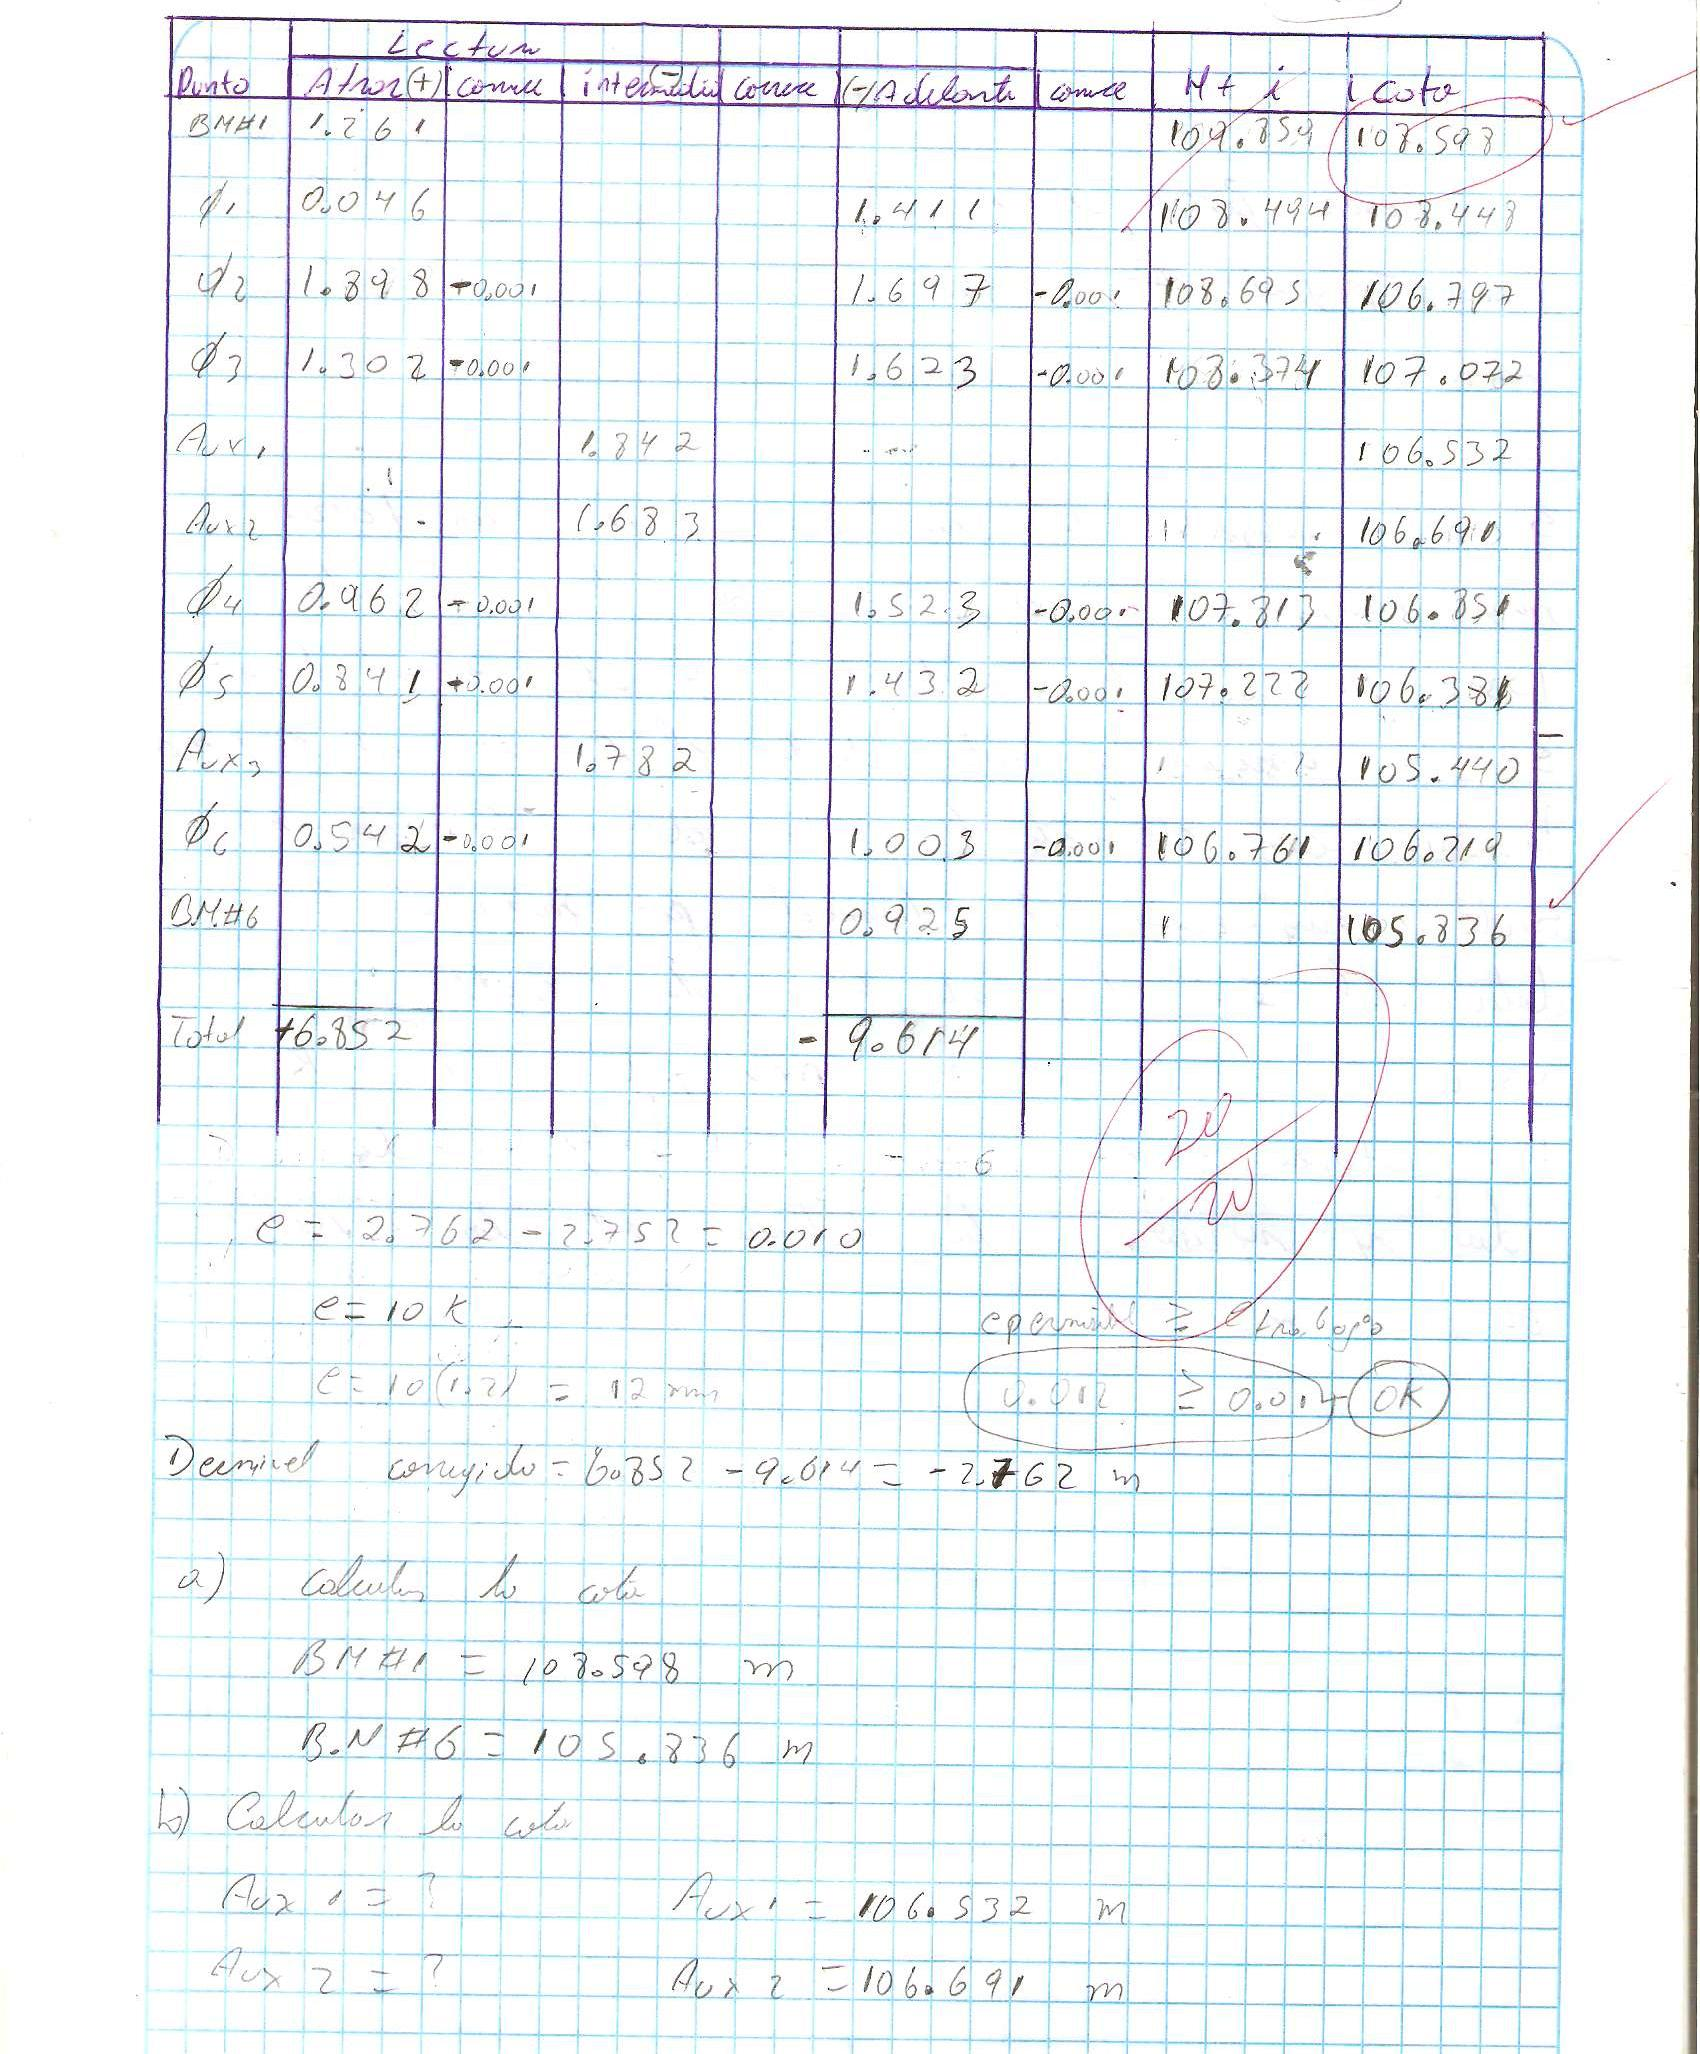 Lectura
Punto Atras(+) corrrec intermedio(-) correcc (-)Adelante correc H + i Cota
BM#1 1.261 109.859 108.598
φ1 0.046 1.411 108.494 108.448
φ2 1.898 -0.001 1.697 -0.001 108.695 106.797
φ3 1.302 -0.001 1.623 -0.001 108.374 107.072
Aux1 1.842 106.532
Aux2 1.683 106.691
φ4 0.962 -0.001 1.523 -0.001 107.813 106.851
φ5 0.841 +0.001 1.432 -0.001 107.222 106.381
Aux3 1.782 105.440
φ6 0.542 -0.001 1.003 -0.001 106.761 106.219
BM#6 0.925 105.836
Total +6.852 - 9.614
20
20
e = 2.762 - 2.752 = 0.010
e = 10 K
e permisible ≥ e trabajo
e = 10(1.2) = 12 mm
0.012 ≥ 0.012 OK
Desnivel corregido = 6.852 - 9.614 = -2.762 m
a) Calcular la cota
BM #1 = 108.598 m
B.M #6 = 105.836 m
b) Calcular la cota
Aux 1 = ? Aux 1 = 106.532 m
Aux 2 = ? Aux 2 = 106.691 m